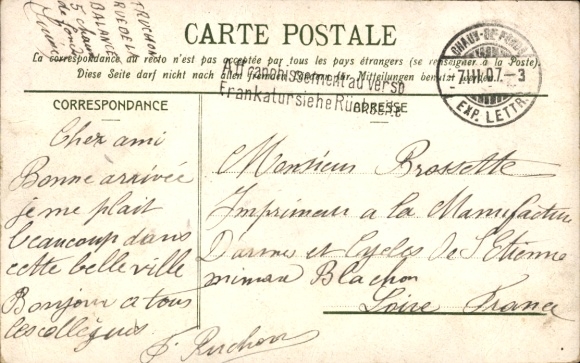 TRUCHON
RUE DE LA
BALANCE
5 chaux
de fond
Suisse
CARTE POSTALE
La correspondance au recto n'est pas acceptée par tous les pays étrangers (se renseigner à la Poste).
Diese Seite darf nicht nach allen fremden Ländern für Mitteilungen benutzt werden.
Affranchissement au verso
Frankatur siehe Rückseite
CHAUX-DE-FONDS
7.III.07.-3
EXP. LETTR.
CORRESPONDANCE
ADRESSE
Cher ami
Bonne arrivée
je me plait
beaucoup dans
cette belle ville
Bonjour a tous
les collègues
Monsieur Brossette
Imprimeur a la Manufacture
Darmes et Cycles de St Etienne
Blachon
Loire France